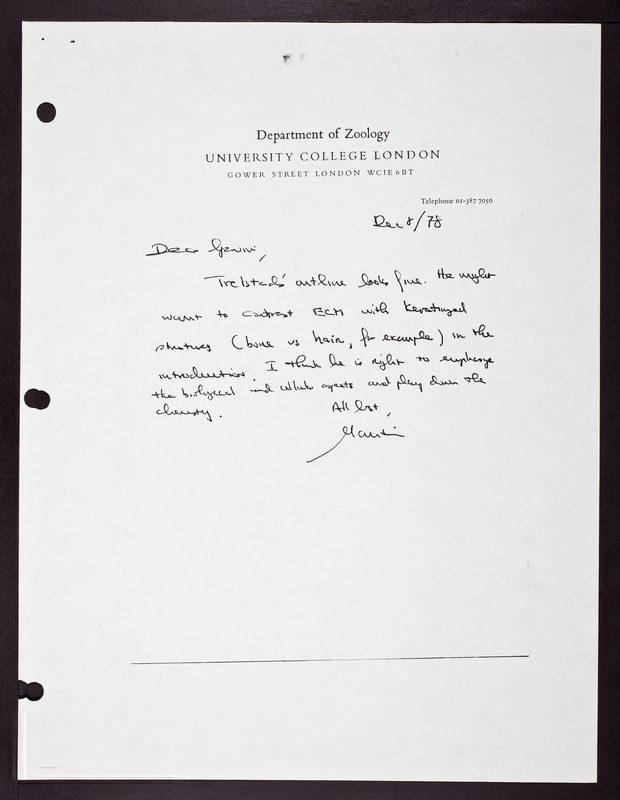 Department of Zoology
UNIVERSITY COLLEGE LONDON
GOWER STREET LONDON WC1E 6BT
Telephone 01-387 7050
Dec 8/78
Dear Gavin,
Trelstad's outline looks fine. He might
want to contrast ECM with keratinized
structures (bone vs hair, for example) in the
introduction. I think he is right to emphasize
the biological and cellular aspects and play down the
chemistry.
All best,
Martin